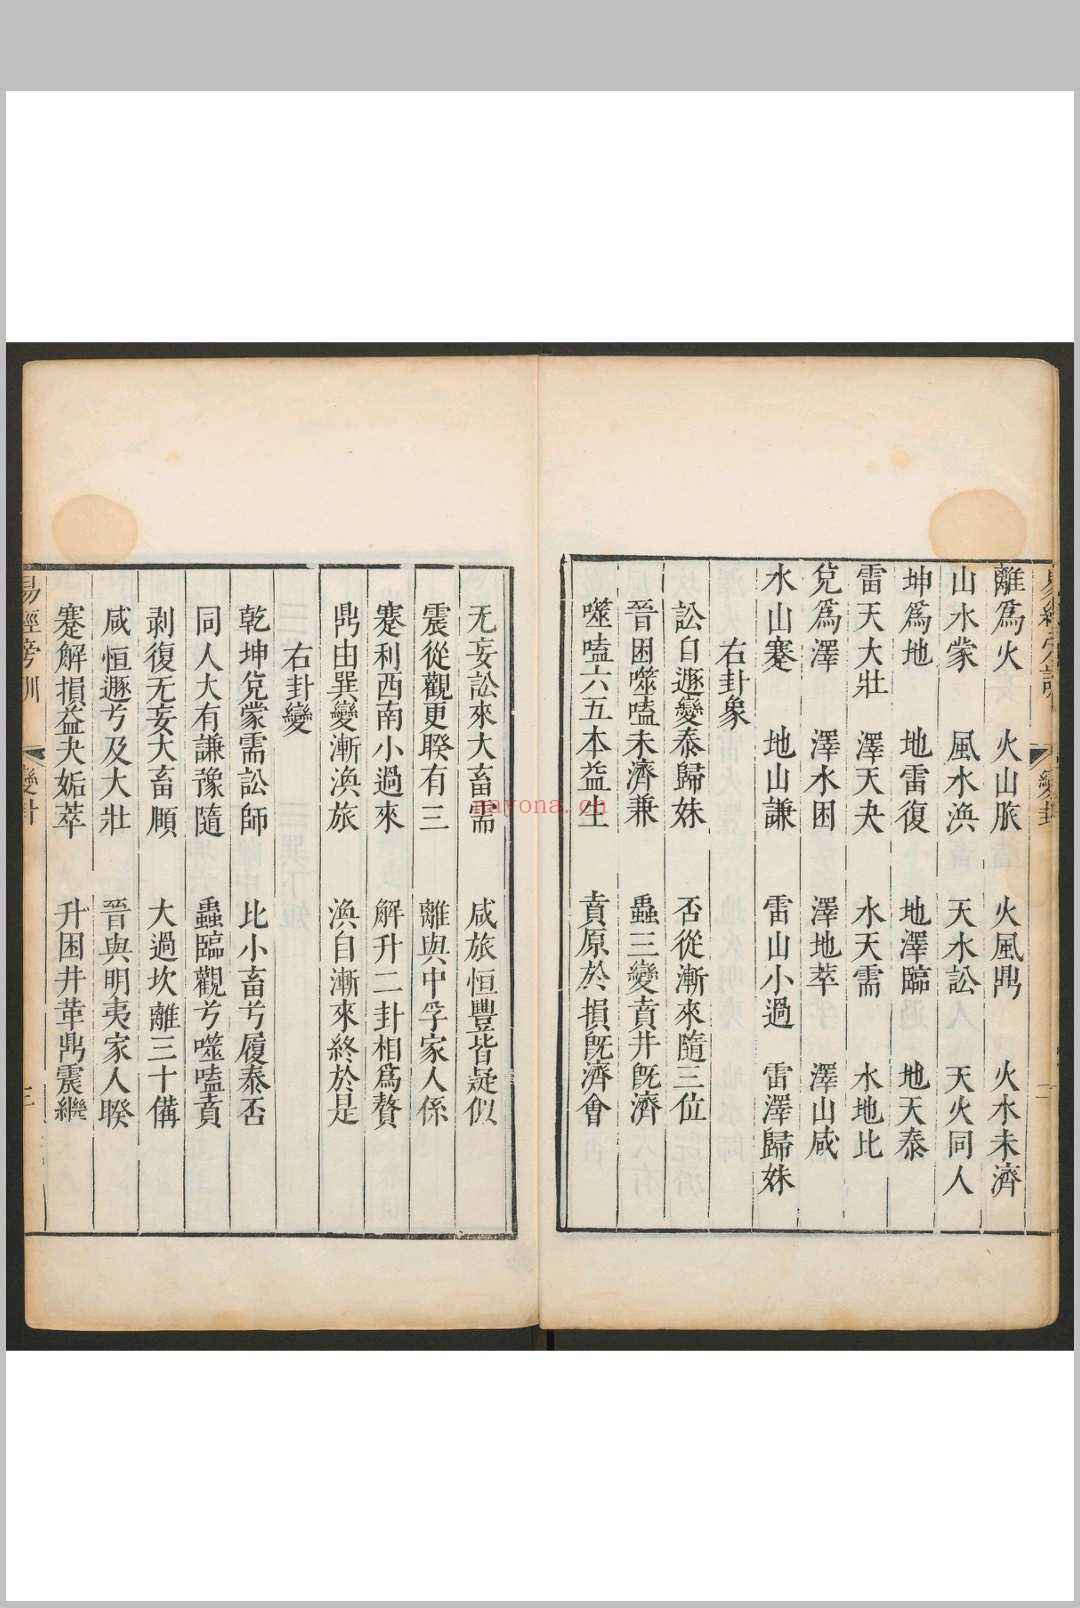 離爲火　火山旅　火風鼎　火水未濟
山水蒙　風水渙　天水訟　天火同人
坤爲地　地雷復　地澤臨　地天泰
雷天大壯　澤天夬　水天需　水地比
兌爲澤　澤水困　澤地萃　澤山咸
水山蹇　地山謙　雷山小過　雷澤歸妹
右卦象
訟自遯變泰歸妹　否從漸來隨三位
晉困噬嗑未濟兼　蠱三變賁井旣濟
噬嗑六五本益生　賁原於損旣濟會
无妄訟來大畜需　咸旅恒豐皆疑似
震從觀更睽有三　離與中孚家人係
蹇利西南小過來　解升二卦相爲贅
鼎由巽變漸渙旅　渙自漸來終於是
右卦變
乾坤兌蒙需訟師　比小畜兮履泰否
同人大有謙豫隨　蠱臨觀兮噬嗑賁
剥復无妄大畜頤　大過坎離三十備
咸恒遯兮及大壯　晉與明夷家人睽
蹇解損益夬姤萃　升困井革鼎震繼
易經旁訓　變卦　三
nayona.cn